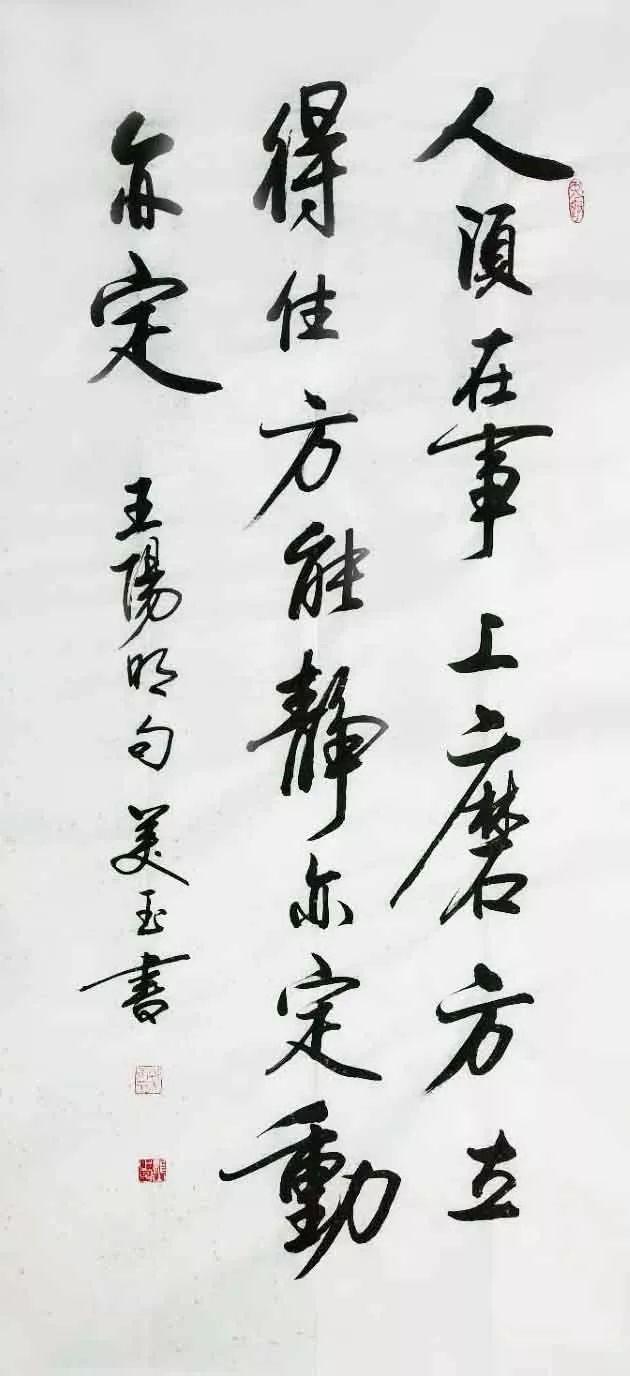 人須在事上磨方立
得住方能靜亦定動
亦定
王陽明句美玉書